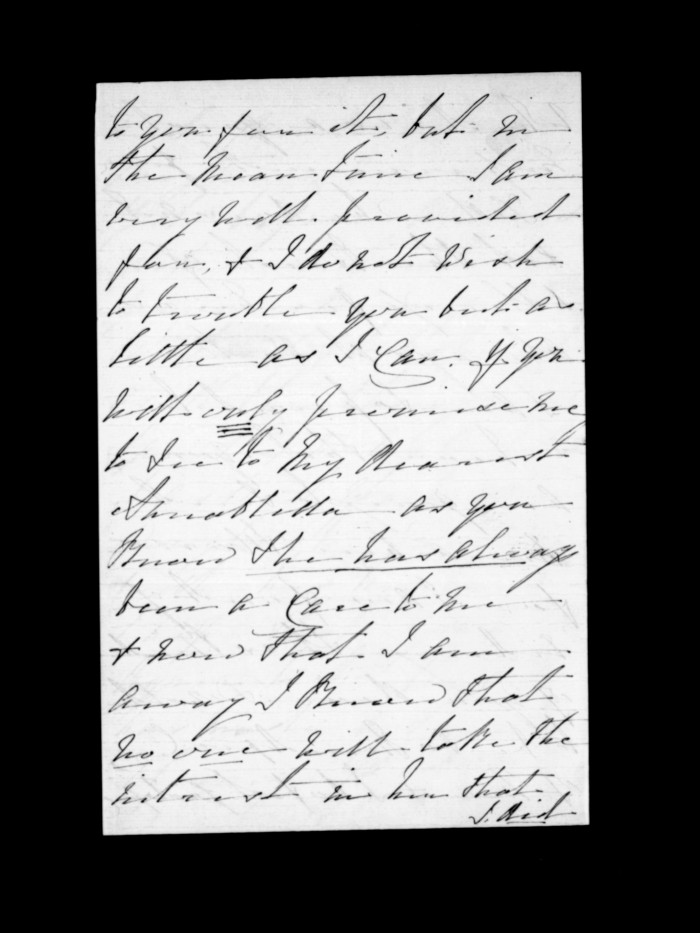 to you for it, but in
the mean time I am
very well provided
for, & I do not wish
to trouble you but as
little as I can. If you
will only promise me
to see to my dearest
Annabella as you
know she has always
been a care to me
& now that I am
away I know that
no one will take the
intrest in her that
I did